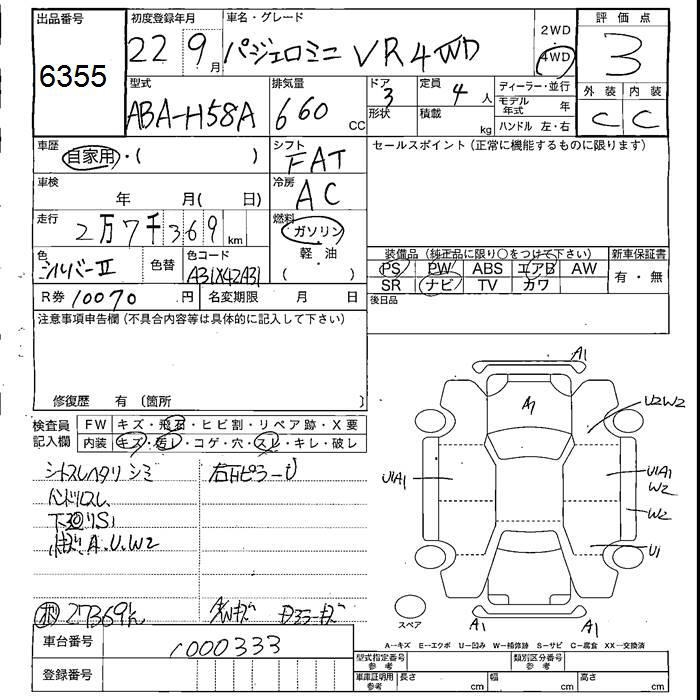 出品番号
6355
初度登録年月
22 9月
車名・グレード
パジェロミニ VR4WD
2WD
4WD
評価点
3
型式
ABA-H58A
排気量
660 CC
ドア
3
形状
定員
4人
積載
kg
ディーラー・並行
モデル年式 年
ハンドル 左・右
外装
C
内装
C
車歴
自家用・( )
シフト
FAT
セールスポイント(正常に機能するものに限ります)
車検
年 月(日)
冷房
AC
走行
2万7千369 km
燃料
ガソリン
軽・油
色
シルバーⅡ
色替
色コード
A31X42A31
装備品(純正品に限り○をつけて下さい)
新車保証書
PS PW ABS エアB AW
SR ナビ TV カワ
有・無
R券 10070円
名変期限 月 日
後日品
注意事項申告欄(不具合内容等は具体的に記入して下さい)
修復歴 有(箇所
検査員記入欄
FW キズ・飛石・ヒビ割・リペア跡・X要
内装 キズ・汚レ・コゲ・穴・スレ・キレ・破レ
シートスレヘタリ シミ
ハンドルスレ
下廻りS1
A.U.W2
27369
A1
A1
U2W2
U1A1
U1A1
W2
W2
U1
スペア
A1
A1
A-キズ E-エクボ U-凹み W-補修跡 S-サビ C-腐食 XX-交換済
車台番号
1000333
登録番号
型式指定番号
参考
類別区分番号
参考
車庫証明用
参考
長さ cm
幅 cm
高さ cm